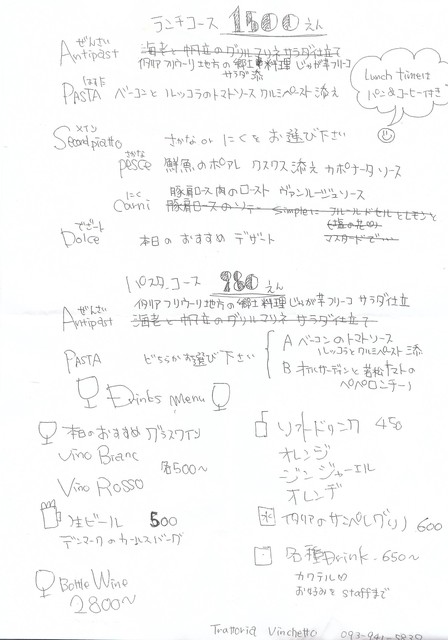 ランチコース 1500えん
ぜんさい
Antipast 海老と帆立のグリルマリネ サラダ仕立て
イタリアフリウーリ地方の郷土料理 じゃが芋フリーコ
サラダ添
Lunch timeは
パン&コーヒー付き
ぱすた
PASTA ベーコンと ルッコラのトマトソース クルミペースト添え
メイン
Secondpiatto さかな or にくを お選び下さい
さかな
pesce 鮮魚のポアレ クスクス添え カポナータソース
にく
Carni 豚肩ロース肉のロースト ヴァンルージュソース
豚肩ロースのソテー simpleに フルールドセルとレモンと
(塩の花)
マスタードで
でざーと
Dolce 本日の おすすめ デザート
パスタコース 980えん
イタリアフリウーリ地方の郷土料理 じゃが芋フリーコ サラダ仕立
ぜんさい
Antipast 海老と帆立のグリルマリネ サラダ仕立て
PASTA どちらかお選び下さい
A ベーコンのトマトソース
ルッコラとクルミペースト添
B オイルサーデンと若松トマトの
ペペロンチーノ
Drinks Menu
本日のおすすめ グラスワイン
Vino Bianc
各500〜
Vino Rosso
生ビール 500
デンマークのカールスバーグ
Bottle Wine
2800〜
ソフトドリンク 450
オレンジ
ジンジャーエール
オレンヂ
イタリアのサンペレグリノ 600
各種Drink. 650〜
カクテルetc
お好みをstaffまで
Trattoria Vinchetto 093-941-